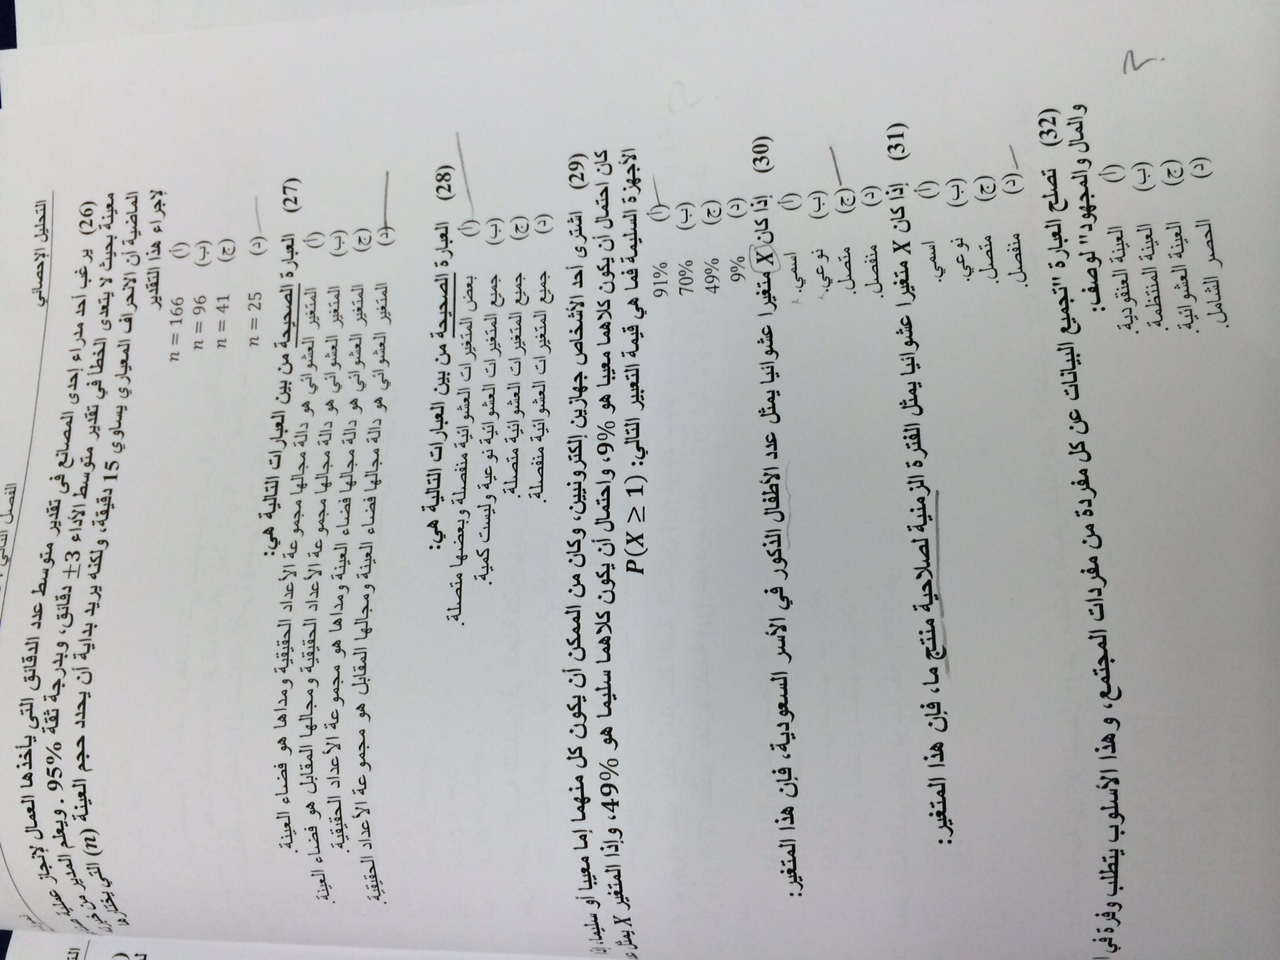 التحليل الإحصائي
(26) يرغب أحد مدراء إحدى المصانع في تقدير متوسط عدد الدقائق التي يأخذها العمال لإنجاز عملية
معينة بحيث لا يتعدى الخطأ في تقدير متوسط الأداء 3± دقائق، وبدرجة ثقة 95%. ويعلم المدير من
الماضية أن الانحراف المعياري يساوي 15 دقيقة، ولكنه يريد بداية أن يحدد حجم العينة (n) التي يختارها
لإجراء هذا التقدير
(أ) n = 166
(ب) n = 96
(ج) n = 41
(د) n = 25
(27) العبارة الصحيحة من بين العبارات التالية هي:
(أ) المتغير العشوائي هو دالة مجالها مجموعة الأعداد الحقيقية ومداها هو فضاء العينة.
(ب) المتغير العشوائي هو دالة مجالها مجموعة الأعداد الحقيقية ومجالها المقابل هو فضاء العينة.
(ج) المتغير العشوائي هو دالة مجالها فضاء العينة ومداها هو مجموعة الأعداد الحقيقية.
(د) المتغير العشوائي هو دالة مجالها فضاء العينة ومجالها المقابل هو مجموعة الأعداد الحقيقية.
(28) العبارة الصحيحة من بين العبارات التالية هي:
(أ) بعض المتغيرات العشوائية منفصلة وبعضها متصلة.
(ب) جميع المتغيرات العشوائية نوعية وليست كمية.
(ج) جميع المتغيرات العشوائية متصلة.
(د) جميع المتغيرات العشوائية منفصلة.
(29) اشترى أحد الأشخاص جهازين إلكترونيين، وكان من الممكن أن يكون كل منهما إما معيبا أو سليما،
كان احتمال أن يكون كلاهما معيبا هو 9%، واحتمال أن يكون كلاهما سليما هو 49%، وإذا المتغير X يمثل
الأجهزة السليمة فما هي قيمة التعبير التالي: P(X ≥ 1)
(أ) 91%
(ب) 70%
(ج) 49%
(د) 9%
(30) إذا كان X متغيرا عشوائيا يمثل عدد الأطفال الذكور في الأسر السعودية، فإن هذا المتغير:
(أ) اسمي.
(ب) نوعي.
(ج) متصل.
(د) منفصل.
(31) إذا كان X متغيرا عشوائيا يمثل الفترة الزمنية لصلاحية منتج ما، فإن هذا المتغير:
(أ) اسمي.
(ب) نوعي.
(ج) متصل.
(د) منفصل.
(32) تصلح العبارة "تجميع البيانات عن كل مفردة من مفردات المجتمع، وهذا الأسلوب يتطلب وفرة في
والمال والمجهود" لوصف:
(أ) العينة العنقودية.
(ب) العينة المنتظمة.
(ج) العينة العشوائية.
(د) الحصر الشامل.